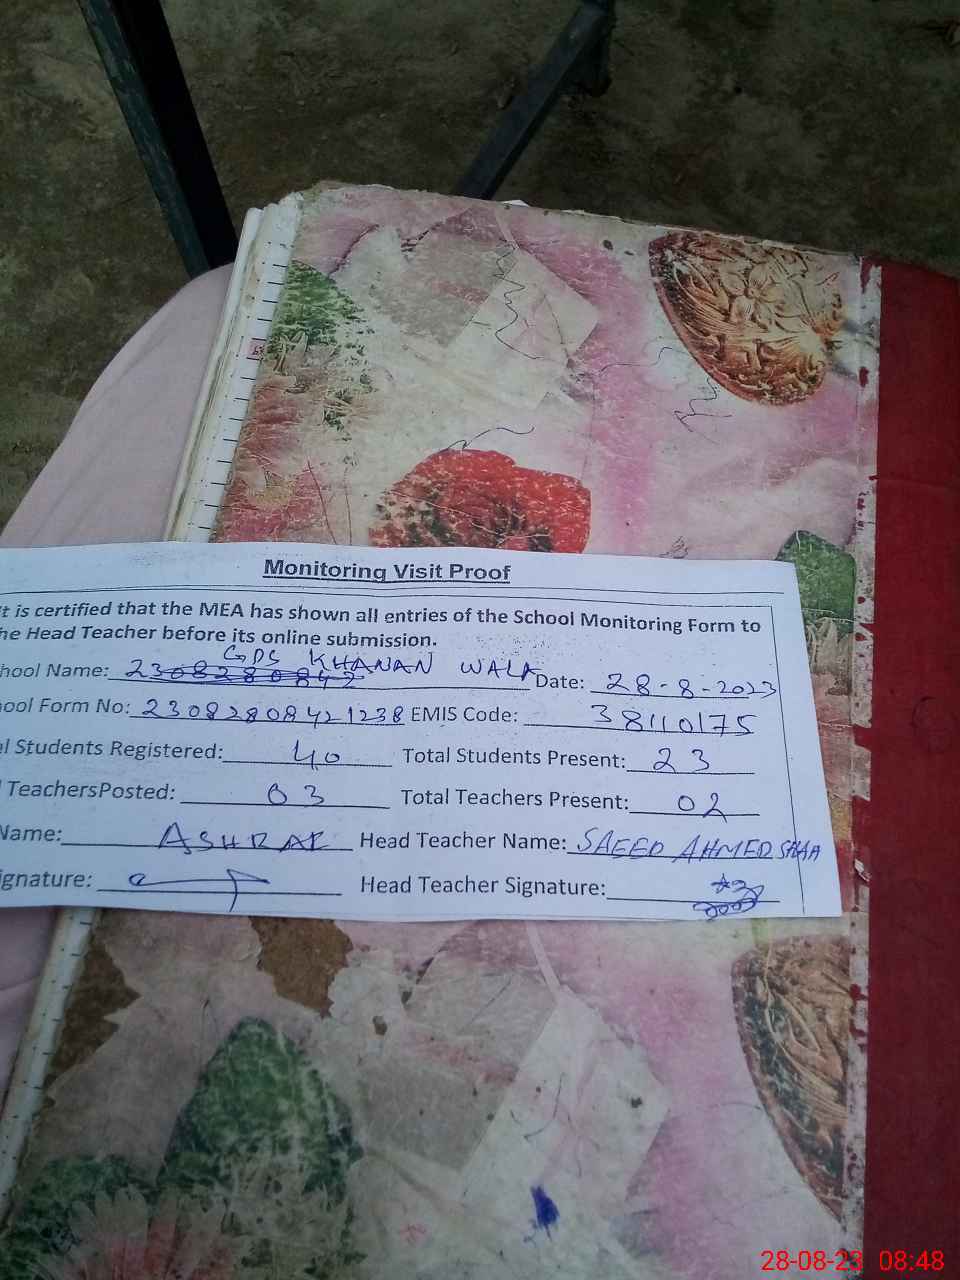 Monitoring Visit Proof
It is certified that the MEA has shown all entries of the School Monitoring Form to
he Head Teacher before its online submission.
GPS KHANAN WALA
hool Name: 2308280842 Date: 28-8-2023
ool Form No: 23082808421238 EMIS Code: 38110175
l Students Registered: 40 Total Students Present: 23
TeachersPosted: 03 Total Teachers Present: 02
Name: ASHRAF Head Teacher Name: SAEED AHMED SHAH
ignature: Head Teacher Signature:
28-08-23 08:48